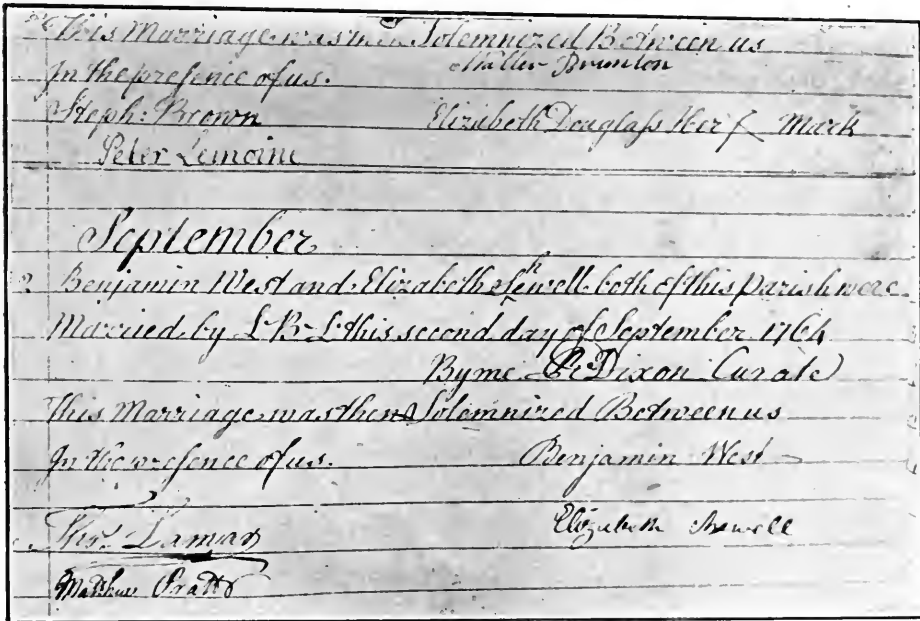 This Marriage was then Solemnized Between us
In the presence of us. Walter Brunton
Steph: Brown Elizabeth Douglass Her X Mark
Peter Lemoine
September
2 Benjamin West and Elizabeth Shewell both of this Parish were
Married by L-B-L this second day of September 1764
By me Dixon Curate
This Marriage was then Solemnized Between us
In the presence of us. Benjamin West
Elizabeth Shewell
Matthew Pratt